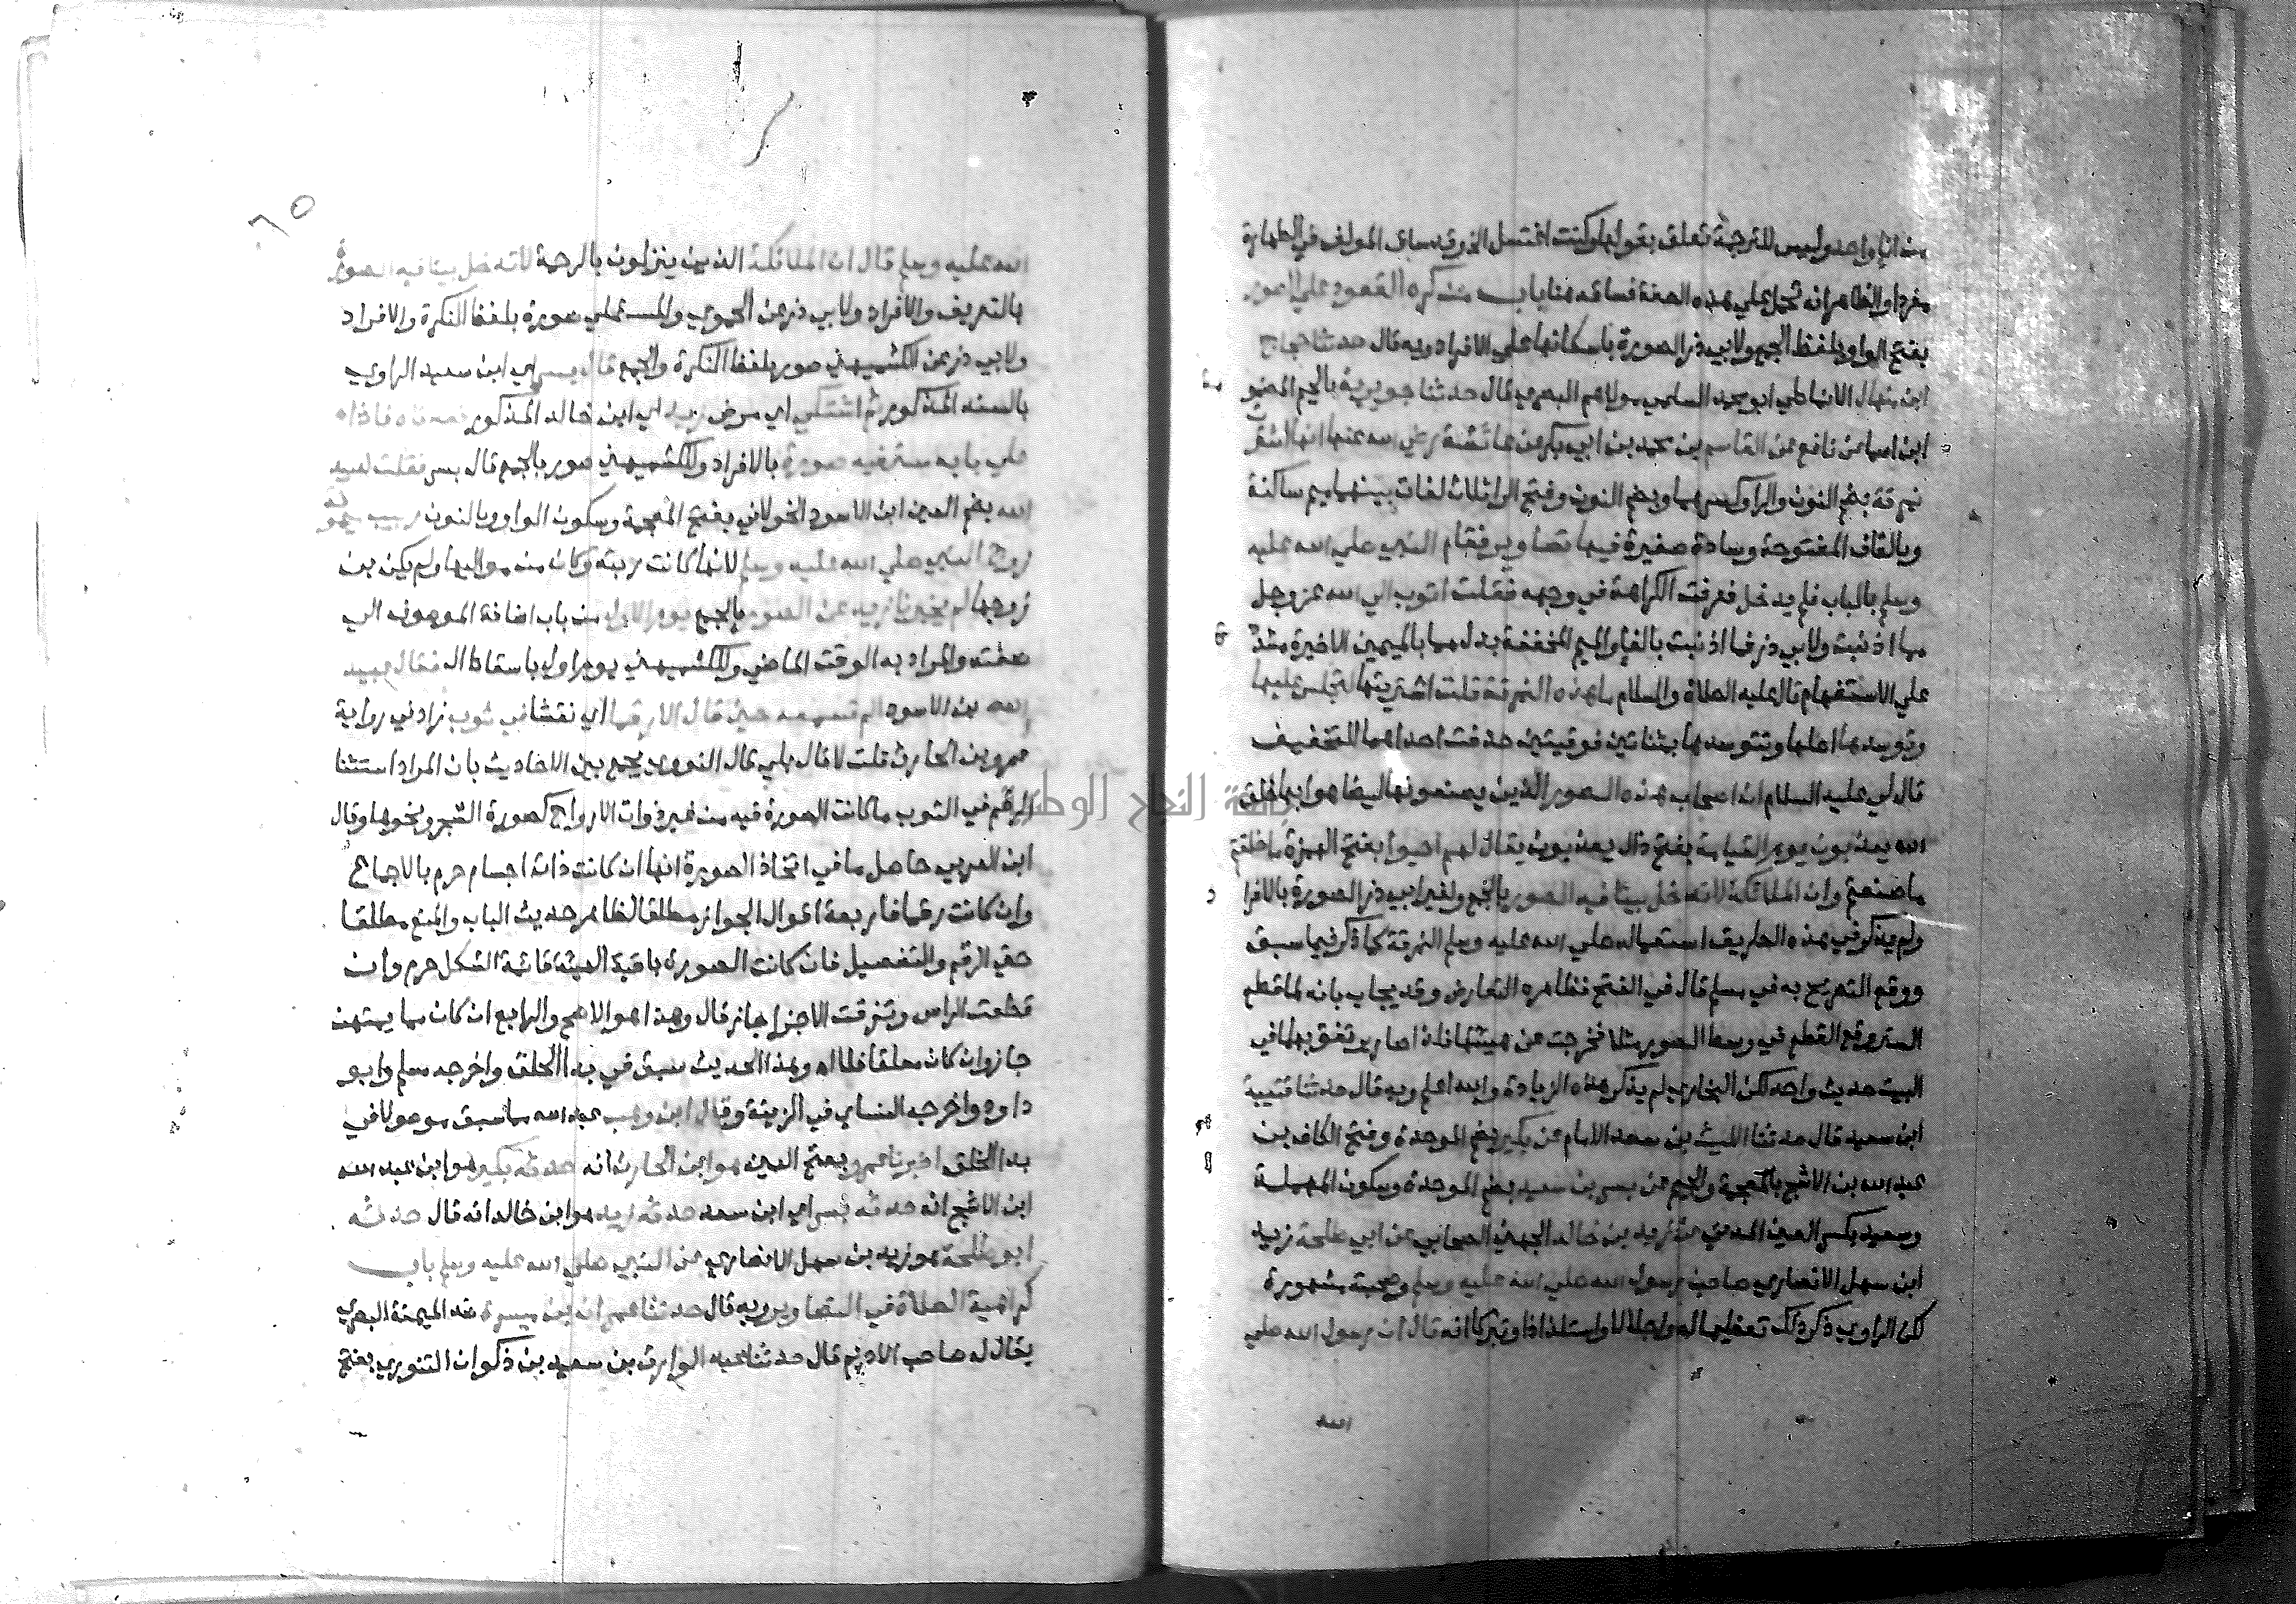 من اناء واحد وليس للترجمة تعلق بقولها وكنت اغتسل الذي ساق المولف في الطهارة
مفردا والظاهر انه تحمل علي هذه الصفة فساقه هنا باب من كره القعود علي الصور
بفتح الواو بلفظ الجمع ولابي ذر الصورة باسكانها علي الافراد وبه قال حدثنا حجاج
ابن منهال الانماطي ابو محمد السلمي مولاهم البصري قال حدثنا جويرية بالجيم المضمو
ابن اسما عن نافع عن القاسم بن محمد بن ابي بكر عن عائشة رضي الله عنها انها اشترت
نمرقة بضم النون والرا وكسرهما وبضم النون وفتح الرا ثلاث لغات بينهما ميم ساكنة
وبالقاف المفتوحة وسادة صغيرة فيها تصاوير فقام النبي صلي الله عليه
وسلم بالباب فلم يدخل فعرفت الكراهة في وجهه فقلت اتوب الي الله عز وجل
مما اذنبت ولابي ذر فما اذنبت بالفاء والميم المخففة بدل مما بالميمين الاخيرة مشد
علي الاستفهام قال عليه الصلاة والسلام ما هذه النمرقة قلت اشتريتها لتجلس عليها
وتوسدها اصلها وتتوسدها بمثناتين فوقيتين حذفت احداهما للتخفيف
قال لي عليه السلام ان اصحاب هذه الصور الذين يصنعونها ليضاهوا بها خلق
الله يعذبون يوم القيامة بفتح ذال يعذبون يقال لهم احيوا بفتح الهمزة ما خلقتم
ما صنعتم وان الملائكة لا تدخل بيتا فيه الصور بالجمع ولغير ابي ذر الصورة بالافرا
ولم يذكر في هذه الطريق استعماله صلي الله عليه وسلم النمرقة كما ذكر فيما سبق
ووقع التصريح به في مسلم قال في الفتح فظاهره التعارض وقد يجاب بانه لما قطع
الستر وقع القطع في وسط الصور مثلا فخرجت عن هيئتها فلذا صار يرتفق بها في
البيت حديث واحد لكن البخاري لم يذكر هذه الزيادة والله اعلم وبه قال حدثنا قتيبة
ابن سعيد قال حدثنا الليث بن سعد الامام عن بكير بضم الموحدة وفتح الكاف بن
عبد الله بن الاشج بالمعجمة والجيم عن بسر بن سعيد بضم الموحدة وسكون المهملة
وسعيد بكسر العين المدني عن زيد بن خالد الجهني الصحابي عن ابي طلحة زيد
ابن سهل الانصاري صاحب رسول الله صلي الله عليه وسلم وصحبته مشهورة
لكن الراوي ذكر ذلك تعظيما له واجلالا واستلذاذا وتبركا انه قال ان رسول الله صلي
الله
٦٥
الله عليه وسلم قال ان الملائكة الذين ينزلون بالرحمة لا تدخل بيتا فيه الصورة
بالتعريف والافراد ولابي ذر عن الحموي والمستملي صورة بلفظ النكرة والافراد
ولابي ذر عن الكشميهني صور بلفظ النكرة والجمع قال بسر اي ابن سعيد الراوي
بالسند المذكور ثم اشتكي اي مرض زيد اي ابن خالد المذكور فعدناه فاذا
علي بابه ستر فيه صورة بالافراد وللكشميهني صور بالجمع قال بسر فقلت لعبيد
الله بضم العين ابن الاسود الخولاني بفتح المعجمة وسكون الواو وبالنون ربيب ميمونة
زوج النبي صلي الله عليه وسلم لانها كانت ربته وكان من مواليها ولم يكن بن
زوجها لم يخبرنا زيد عن الصور بالجمع يوم الاول من باب اضافة الموصوف الي
صفته والمراد به الوقت الماضي وللكشميهني يوم اول باسقاط ال فقال عبيد
الله بن الاسود الم تسمعه حين قال الا رقما اي نقشا في ثوب زاد في رواية
عمرو بن الحارث قلت لا قال بلي قال النووي يجمع بين الاحاديث بان المراد استثنا
الرقم في الثوب ما كانت الصورة فيه من غير ذوات الارواح كصورة الشجر ونحوها وقال
ابن العربي حاصل ما في اتخاذ الصورة انها ان كانت ذات اجسام حرم بالاجماع
وان كانت رقما فاربعة اقوال الجواز مطلقا لظاهر حديث الباب والمنع مطلقا
حتي الرقم والتفصيل فان كانت الصورة باقية الهيئة قائمة الشكل حرم وان
قطعت الراس وتفرقت الاجزا جاز قال وهذا هو الاصح والرابع ان كان مما يمتهن
جاز وان كان معلقا فلا اه وهذا الحديث سبق في بدا الخلق واخرجه مسلم وابو
داود واخرجه النساي في الزينة وقال ابن وهب عبد الله مما سبق موصولا في
بدا الخلق اخبرنا عمرو بفتح العين هو ابن الحارث انه حدثه بكير هو ابن عبد الله
ابن الاشج انه حدثه بسر اي ابن سعيد حدثه زيد هو ابن خالد انه قال حدثه
ابو طلحة هو زيد بن سهل الانصاري عن النبي صلي الله عليه وسلم باب
كراهية الصلاة في التصاوير وبه قال حدثنا عمران بن ميسرة ضد الميمنة البصري
يقال له صاحب الاديم قال حدثنا عبد الوارث بن سعيد بن ذكوان التنوري بفتح